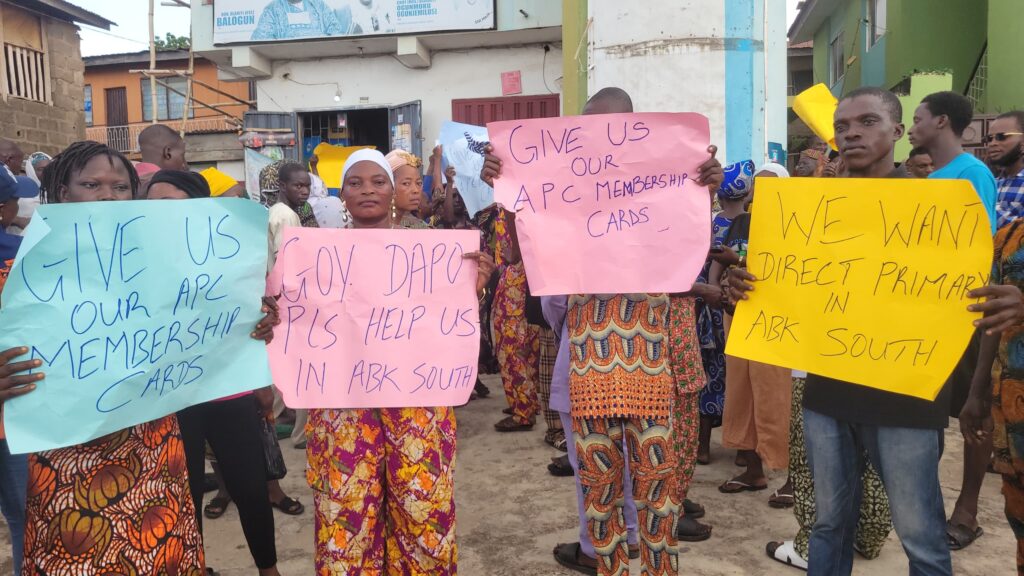 BALOGUN
OGUNMOKU
GIVE US
OUR APC
MEMBERSHIP
CARDS
GOV. DAPO
PLS HELP US
IN ABK SOUTH
GIVE US
OUR
APC MEMBERSHIP
CARDS
WE WANT
DIRECT PRIMARY
IN
ABK SOUTH